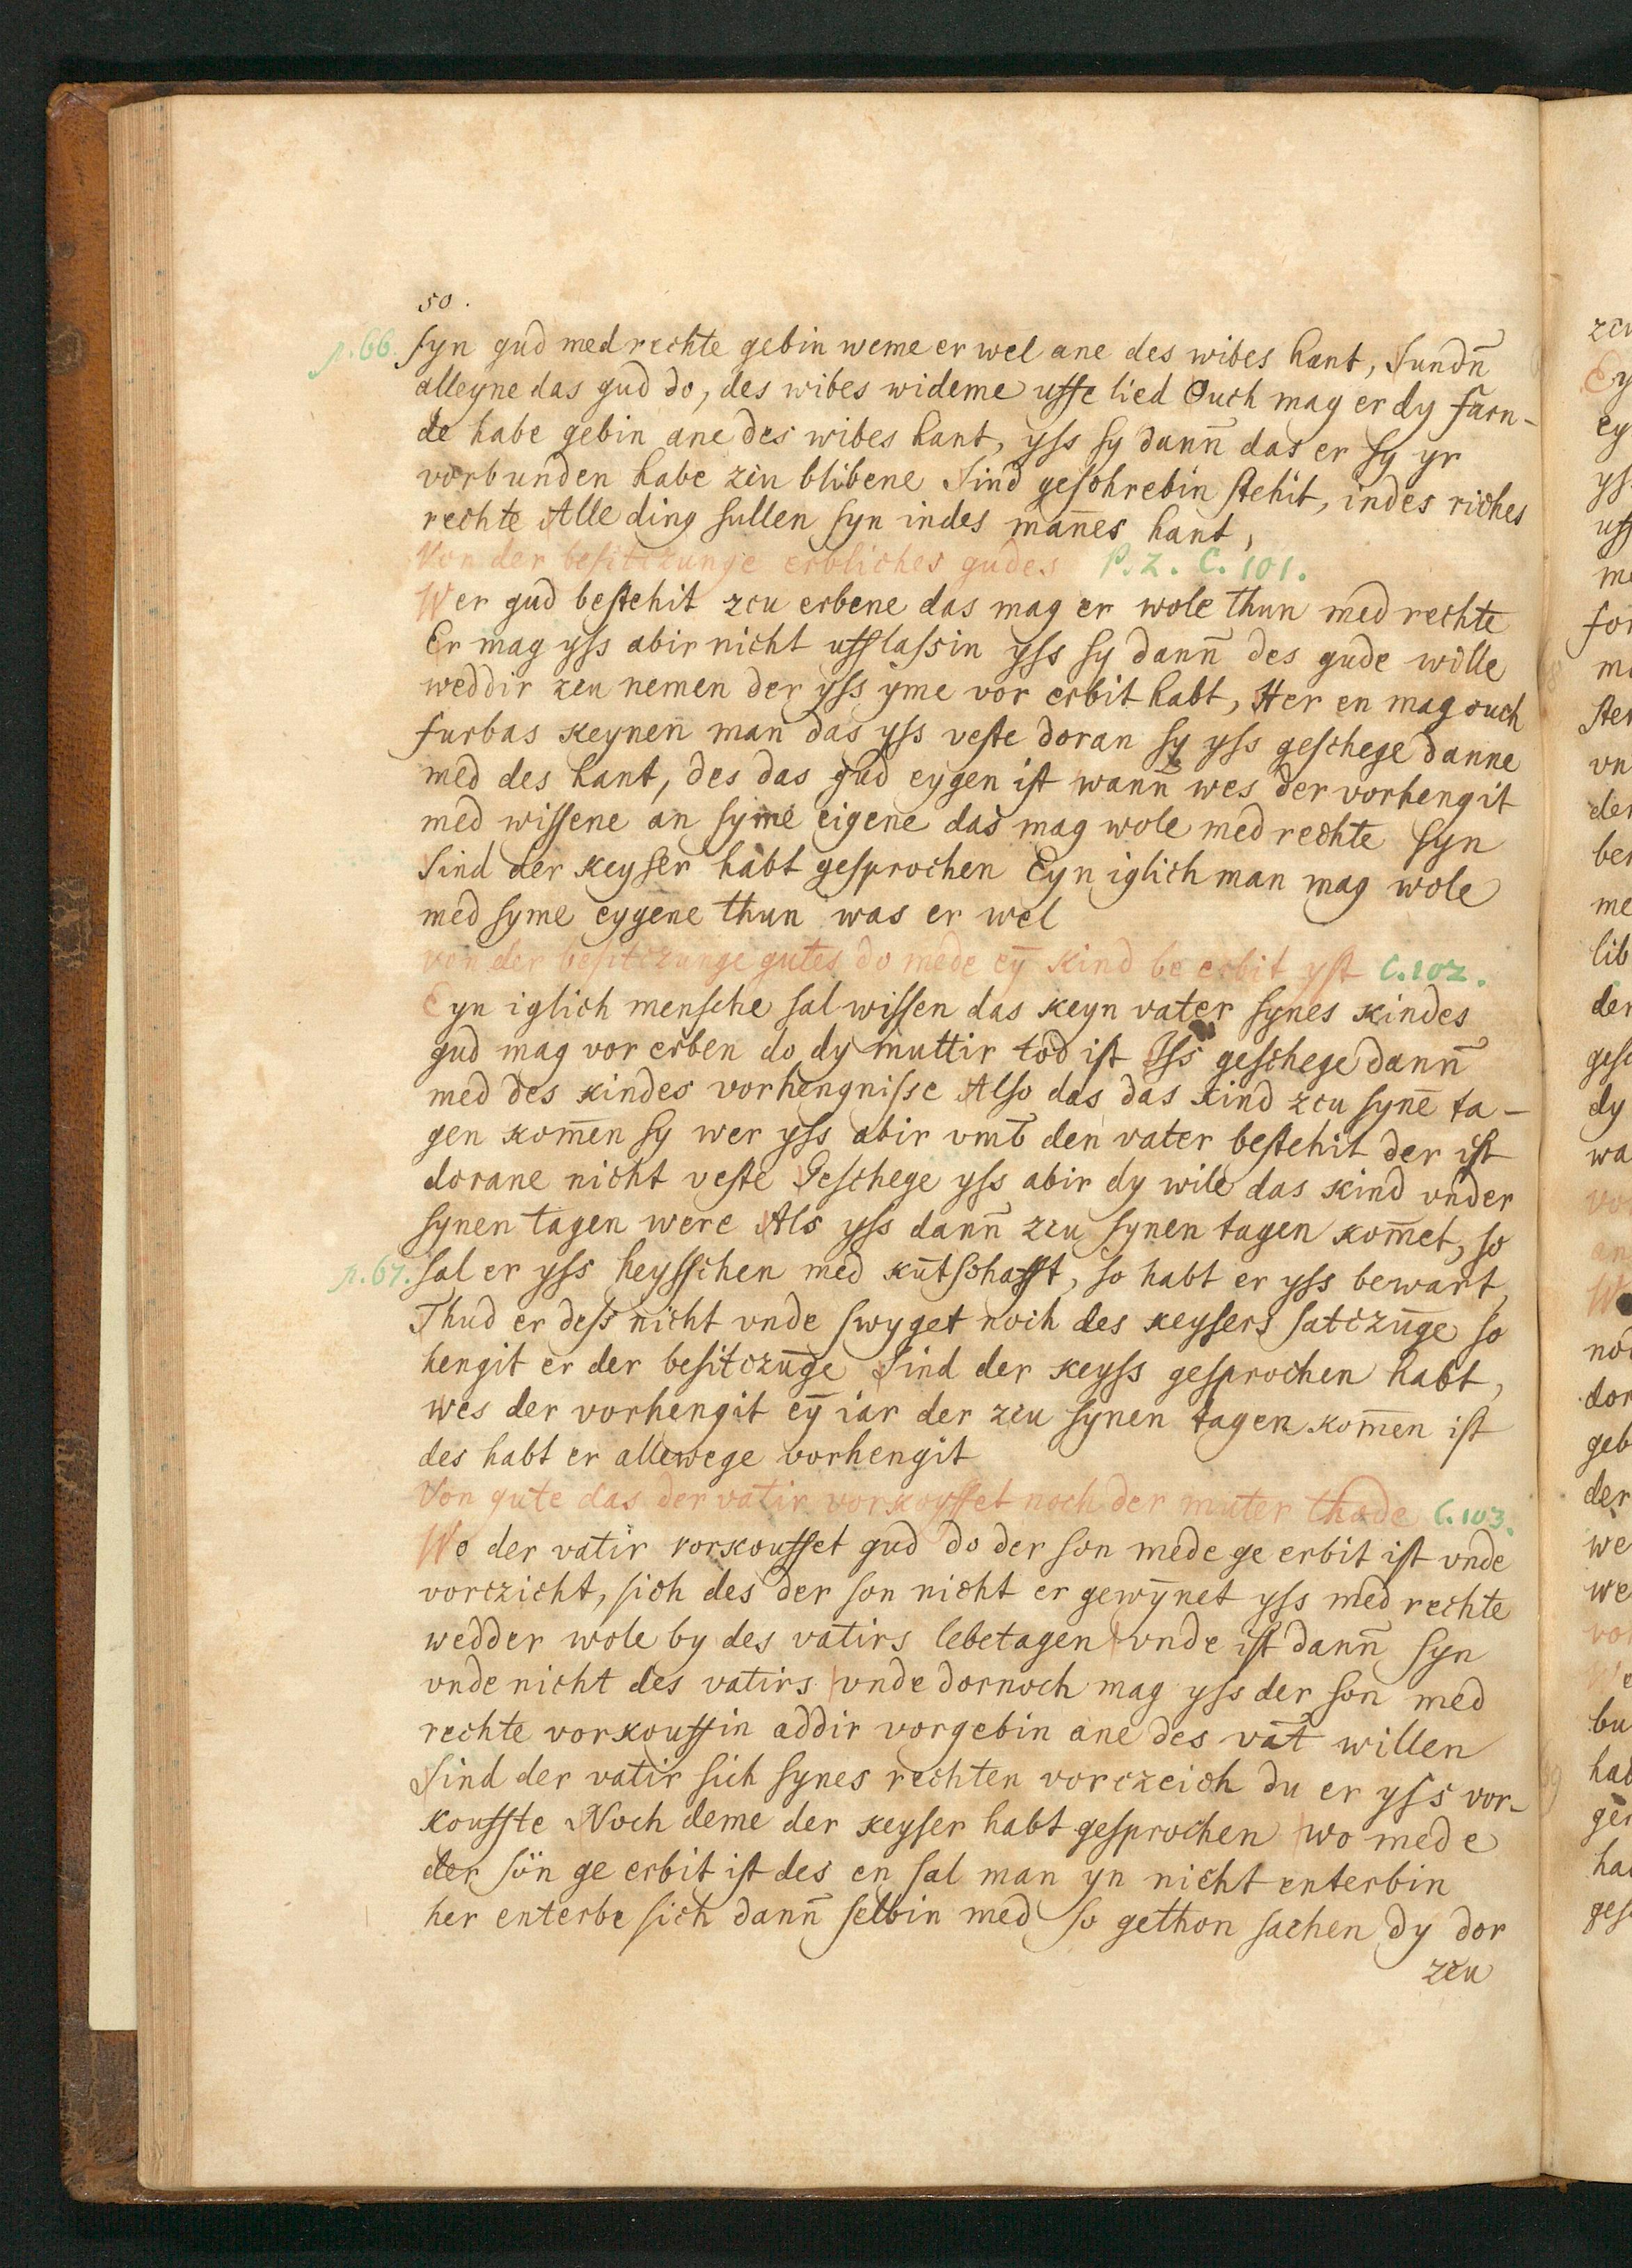 50.
p. 66. syn gud med rechte gebin weme er wel ane des wibes hant, Sundn̄
alleyne das gud do, des wibes wideme uffe lied Ouch mag er dy farn-
de habe gebin ane des wibes hant, yss sy dann̄ das er sy yr
vorbunden habe zcu blibene Sind geschrebin stehit, in des riches
rechte Alle ding sullen syn in des man̄es hant,
Von der besittzunge erbliches gudes P. 2. C. 101.
Wer gud bestehit zcu erbene das mag er wole thun med rechte
Er mag yss abir nicht uff lassin yss sy dann̄ des gude wille
weddir zcu nemen der yss yme vor erbit habt, Her en mag ouch
furbas keynen̄ man das yss veste doran sy yss geschege danne
med des hant, des das gud eygen ist wann̄ wes der vorhengit
med wissene an syme eigene das mag wole med rechte syn
Sind der keyser habt gesprochen Eyn iglich man mag wole
med syme eygene thun was er wel
von der besitczunge gutes do mede eȳ kind be erbit yst C. 102.
Eyn iglich mensche sal wissen das keyn vater synes kindes
gud mag vor erben do dy muttir tod ist Iss geschege dann̄
med des kindes vorhengnisse Also das das kind zcu synē ta-
gen kom̄en sy wer yss abir vmb̄ den vater bestehit der ist
dorane nicht veste Geschege yss abir dy wile das kind vnder
synen tagen were Als yss dann̄ zcu synen tagen kom̄et, so
p. 67. sal er yss heysschen med kūtschafft, so habt er yss bewart,
Thud er dess nicht vnde swyget noch des keysers satczūge so
hengit er der besitczūge Sind der keyss gesprochen habt,
wes der vorhengit eȳ iar der zcu synen tagen kom̄en ist
des habt er allewege vorhengit
Von gute das der vatir vorkoyffet noch der muter thode C. 103.
Wo der vatir vorkouffet gud do der son mede ge erbit ist vnde
vorczicht, sich des der son nicht er gewȳnet yss med rechte
wedder wole by des vatirs lebetagen vnde ist dann̄ syn
vnde nicht des vatirs vnde dornoch mag yss der son med
rechte vorkouffin addir vorgebin ane des vat̄ willen
Sind der vatir sich synes rechten vorczeich du er yss vor-
kouffte Noch deme der keyser habt gesprochen wo mede
der sön ge erbit ist des en sal man yn nicht enterbin
her enterbe sich dann̄ selbin med so gethon sachen dy dor
zcu